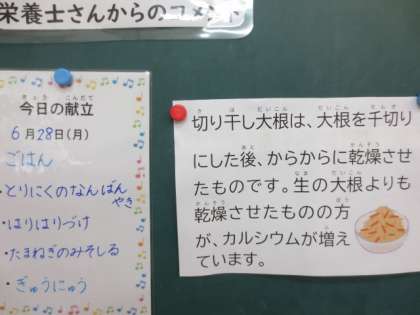 栄養士さんからのコメント
今日の献立
6月28日(月)
ごはん
・とりにくのなんばん
やき
・はりはりづけ
・たまねぎのみそしる
・ぎゅうにゅう
切り干し大根は、大根を千切り
にした後、からからに乾燥させ
たものです。生の大根よりも
乾燥させたものの方
が、カルシウムが増え
ています。